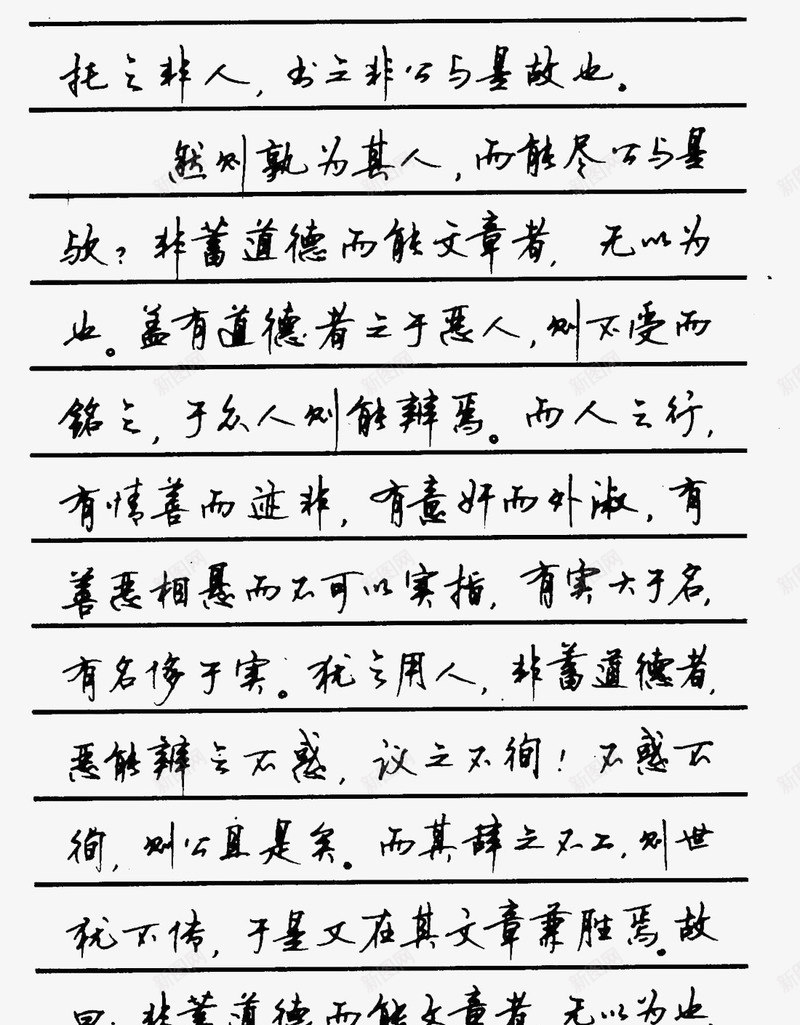 托之非人，书之非公与是故也。
然则孰为其人，而能尽公与是
欤？非蓄道德而能文章者，无以为
也。盖有道德者之于恶人，则不受而
铭之，于众人则能辨焉。而人之行，
有情善而迹非，有意奸而外淑，有
善恶相悬而不可以实指，有实大于名，
有名侈于实。犹之用人，非蓄道德者，
恶能辨之不惑，议之不徇！不惑不
徇，则公且是矣。而其辞之不工，则世
犹不传，于是又在其文章兼胜焉。故
曰：非蓄道德而能文章者，无以为也